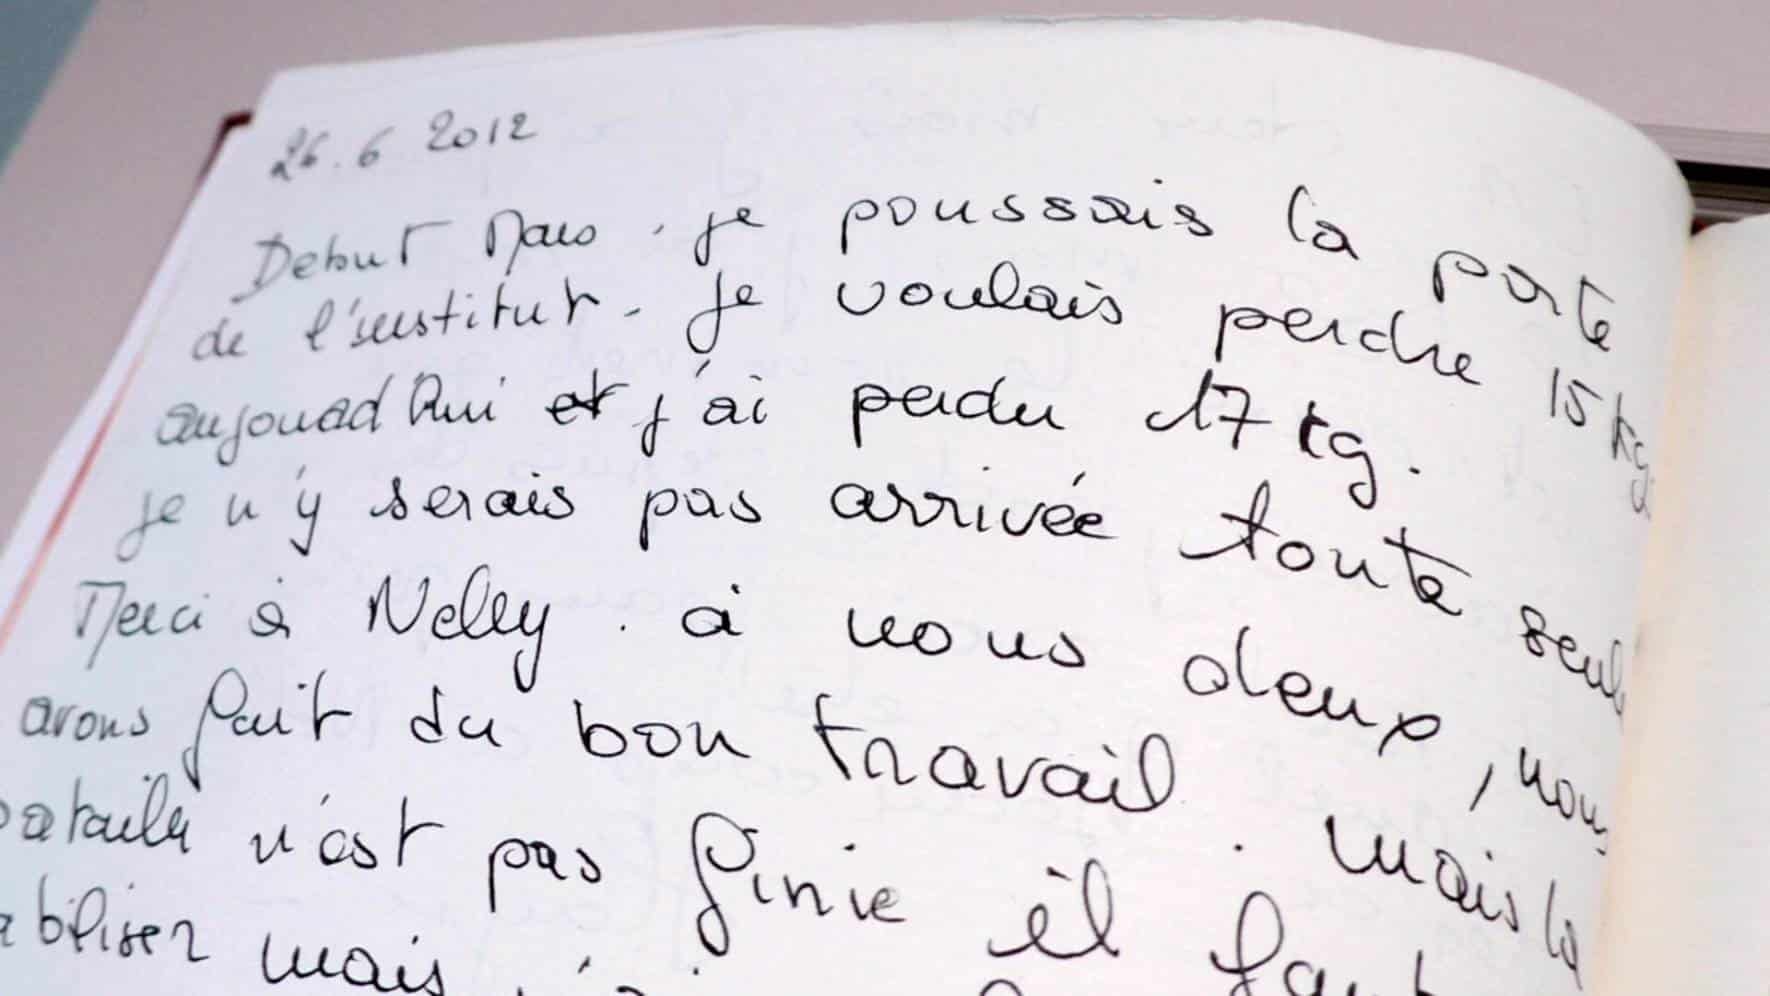 26.6 2012
Debut Mars. je poussais la porte
de l'institut. Je voulais perdre 15 kg.
aujourd'hui et j'ai perdu 17 kg.
Je n'y serais pas arrivée toute seule
Merci à Nelly. à nous deux, nous
avons fait du bon travail. mais la
bataille n'est pas finie il faut
abiliser mais